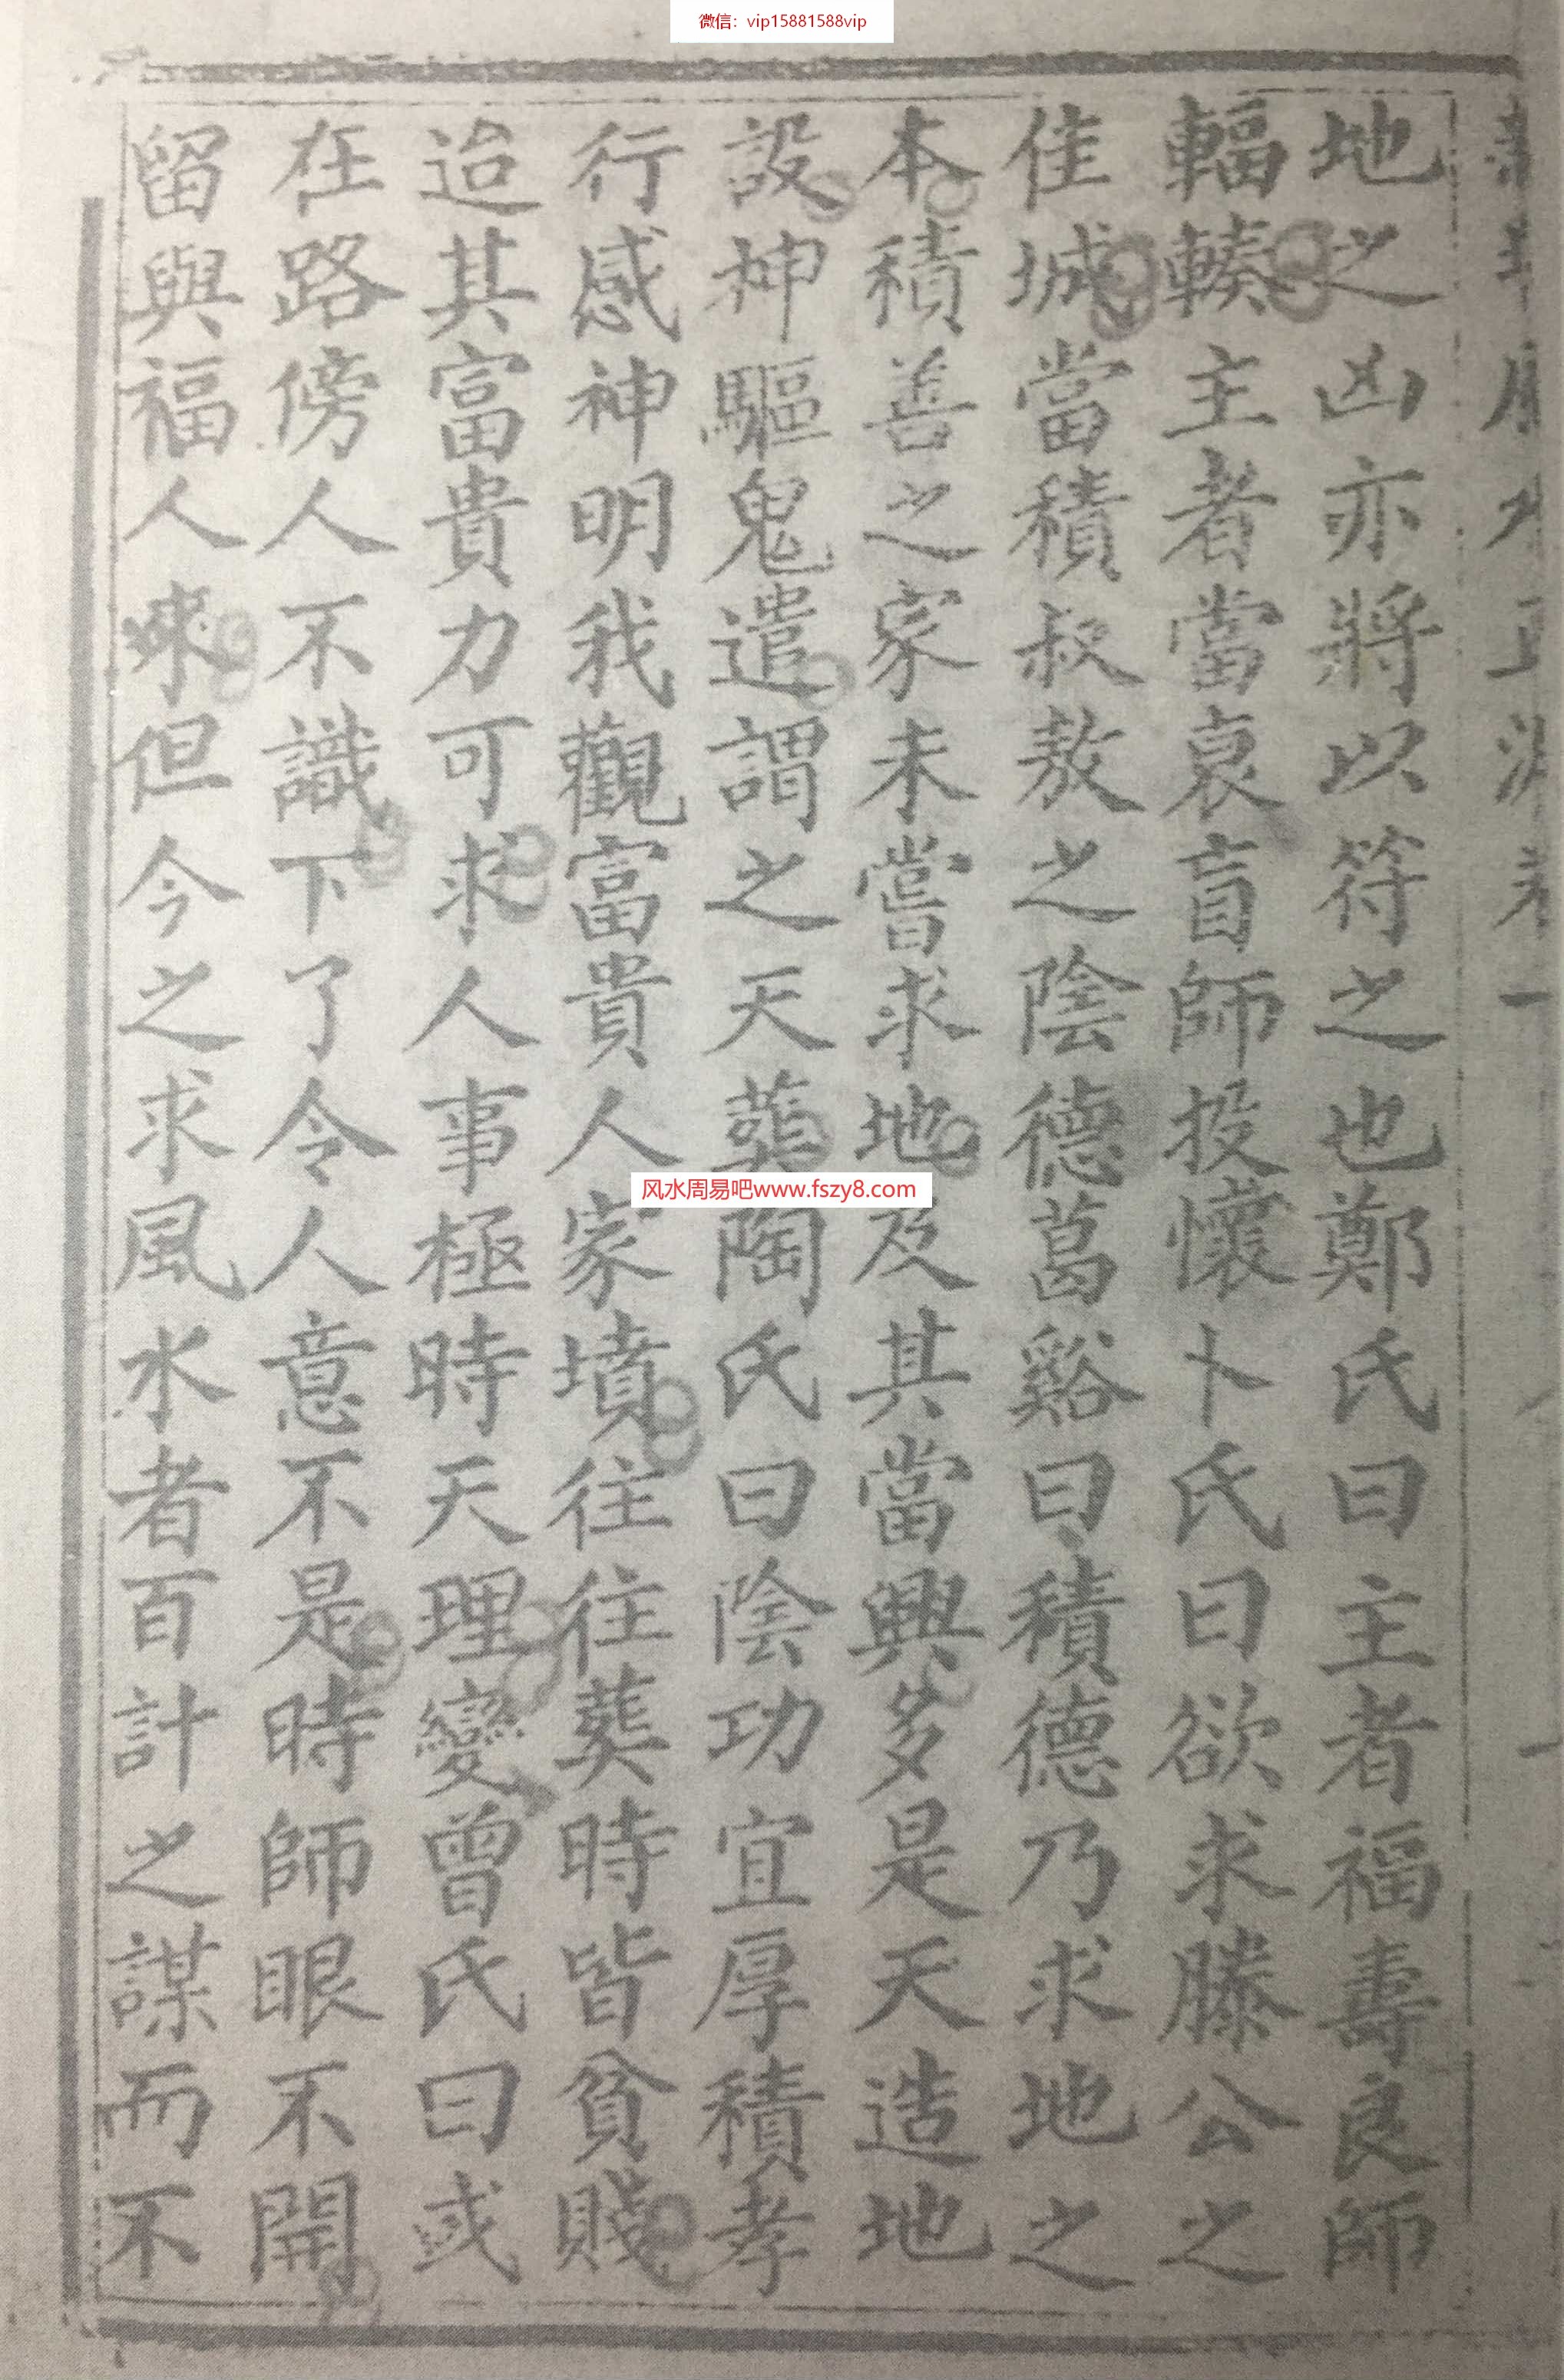 微信：vip15881588vip
地之凶亦將以符之也鄭氏曰主者福壽良師
輻輳主者當哀盲師投懷卜氏曰欲求滕公之
佳城當積叔敖之陰德葛谿曰積德乃求地之
本積善之家未嘗求地及其當興多是天造地
設神驅鬼遣謂之天葬陶氏曰陰功宜厚積孝
行感神明我觀富貴人家墳往往葬時皆貧賤
迨其富貴力可求人事極時天理變曾氏曰或
在路傍人不識下了令人意不是時師眼不開
留與福人來但今之求風水者百計之謀而不
风水周易吧www.fszy8.com